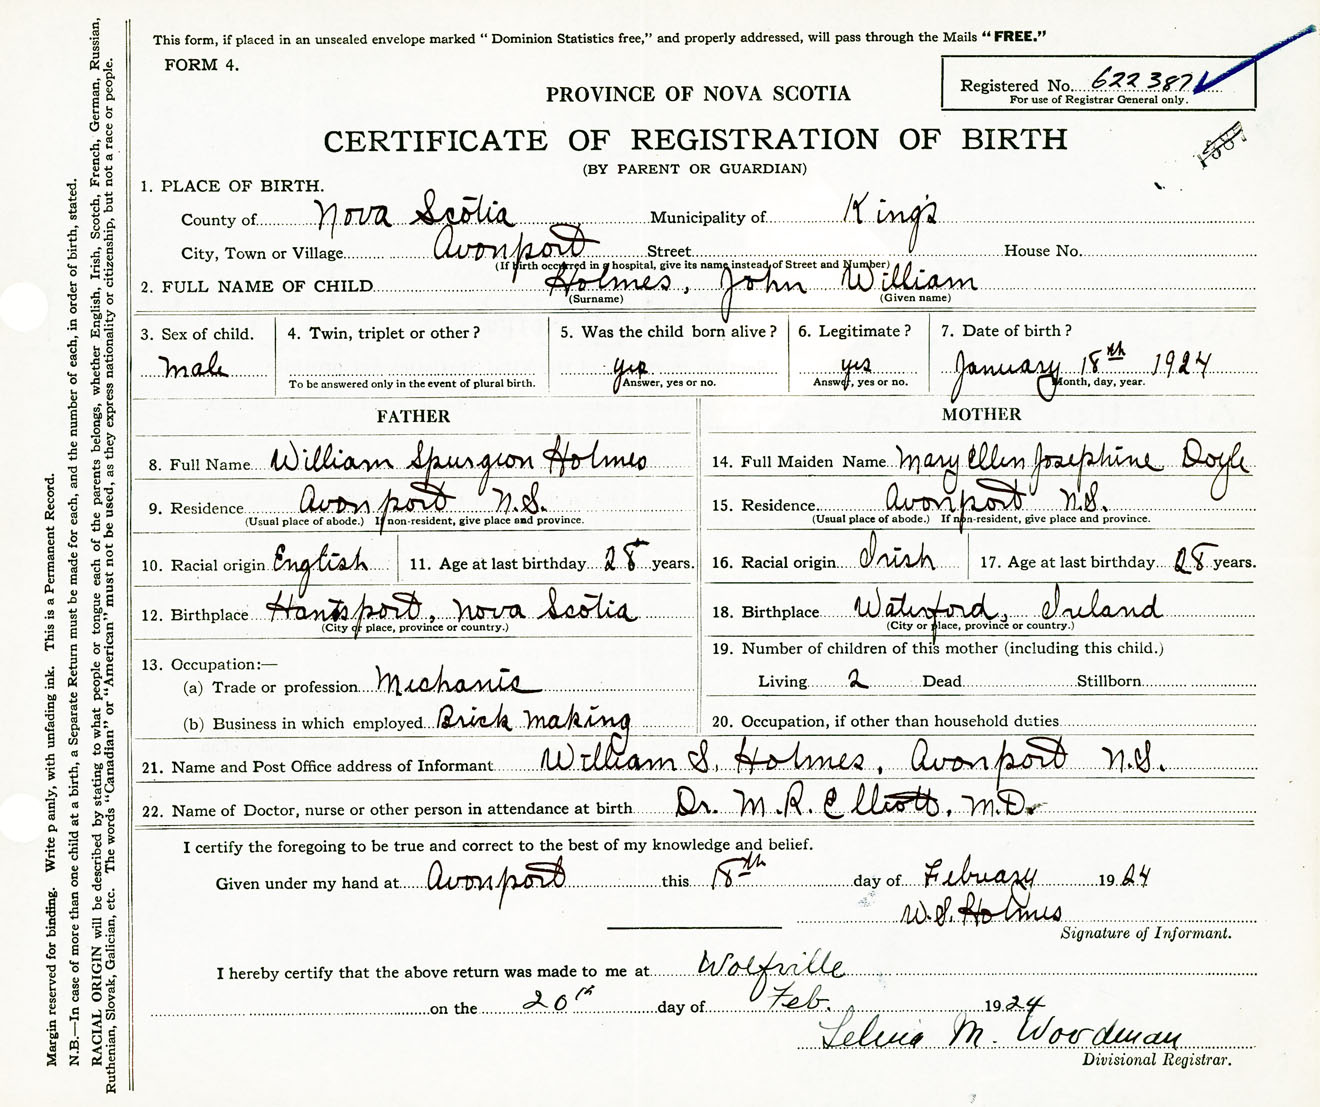 This form, if placed in an unsealed envelope marked “ Dominion Statistics free,” and properly addressed, will pass through the Mails “ FREE.”
FORM 4.
Registered No. 622387
For use of Registrar General only.
PROVINCE OF NOVA SCOTIA
CERTIFICATE OF REGISTRATION OF BIRTH
(BY PARENT OR GUARDIAN)
1. PLACE OF BIRTH.
County of Nova Scotia Municipality of King's
City, Town or Village Avonport Street House No.
(If birth occurred in a hospital, give its name instead of Street and Number)
2. FULL NAME OF CHILD Holmes, John William
(Surname) (Given name)
3. Sex of child. 4. Twin, triplet or other ? 5. Was the child born alive ? 6. Legitimate ? 7. Date of birth ?
male yes yes January 18th 1924
To be answered only in the event of plural birth. Answer, yes or no. Answer, yes or no. Month, day, year.
FATHER MOTHER
8. Full Name William Spurgeon Holmes 14. Full Maiden Name Mary Ellen Josephine Doyle
9. Residence Avonport N.S. 15. Residence Avonport N.S.
(Usual place of abode.) If non-resident, give place and province. (Usual place of abode.) If non-resident, give place and province.
10. Racial origin English 11. Age at last birthday 28 years. 16. Racial origin Irish 17. Age at last birthday 28 years.
12. Birthplace Hantsport, Nova Scotia 18. Birthplace Waterford, Ireland
(City or place, province or country.) (City or place, province or country.)
13. Occupation:— 19. Number of children of this mother (including this child.)
(a) Trade or profession Mechanic Living 2 Dead Stillborn
(b) Business in which employed Brick making 20. Occupation, if other than household duties
21. Name and Post Office address of Informant William S. Holmes, Avonport N.S.
22. Name of Doctor, nurse or other person in attendance at birth Dr. M. R. Elliott, M.D.
I certify the foregoing to be true and correct to the best of my knowledge and belief.
Given under my hand at Avonport this 18th day of February 1924
W. S. Holmes
Signature of Informant.
I hereby certify that the above return was made to me at Wolfville
on the 20th day of Feb. 1924
Selina M. Woodman
Divisional Registrar.
Margin reserved for binding. Write plainly, with unfading ink. This is a Permanent Record.
N.B.—In case of more than one child at a birth, a Separate Return must be made for each, and the number of each, in order of birth, stated.
RACIAL ORIGIN will be described by stating to what people or tongue each of the parents belongs, whether English, Irish, Scotch, French, German, Russian,
Ruthenian, Slovak, Galician, etc. The words “Canadian” or “American” must not be used, as they express nationality or citizenship, but not a race or people.